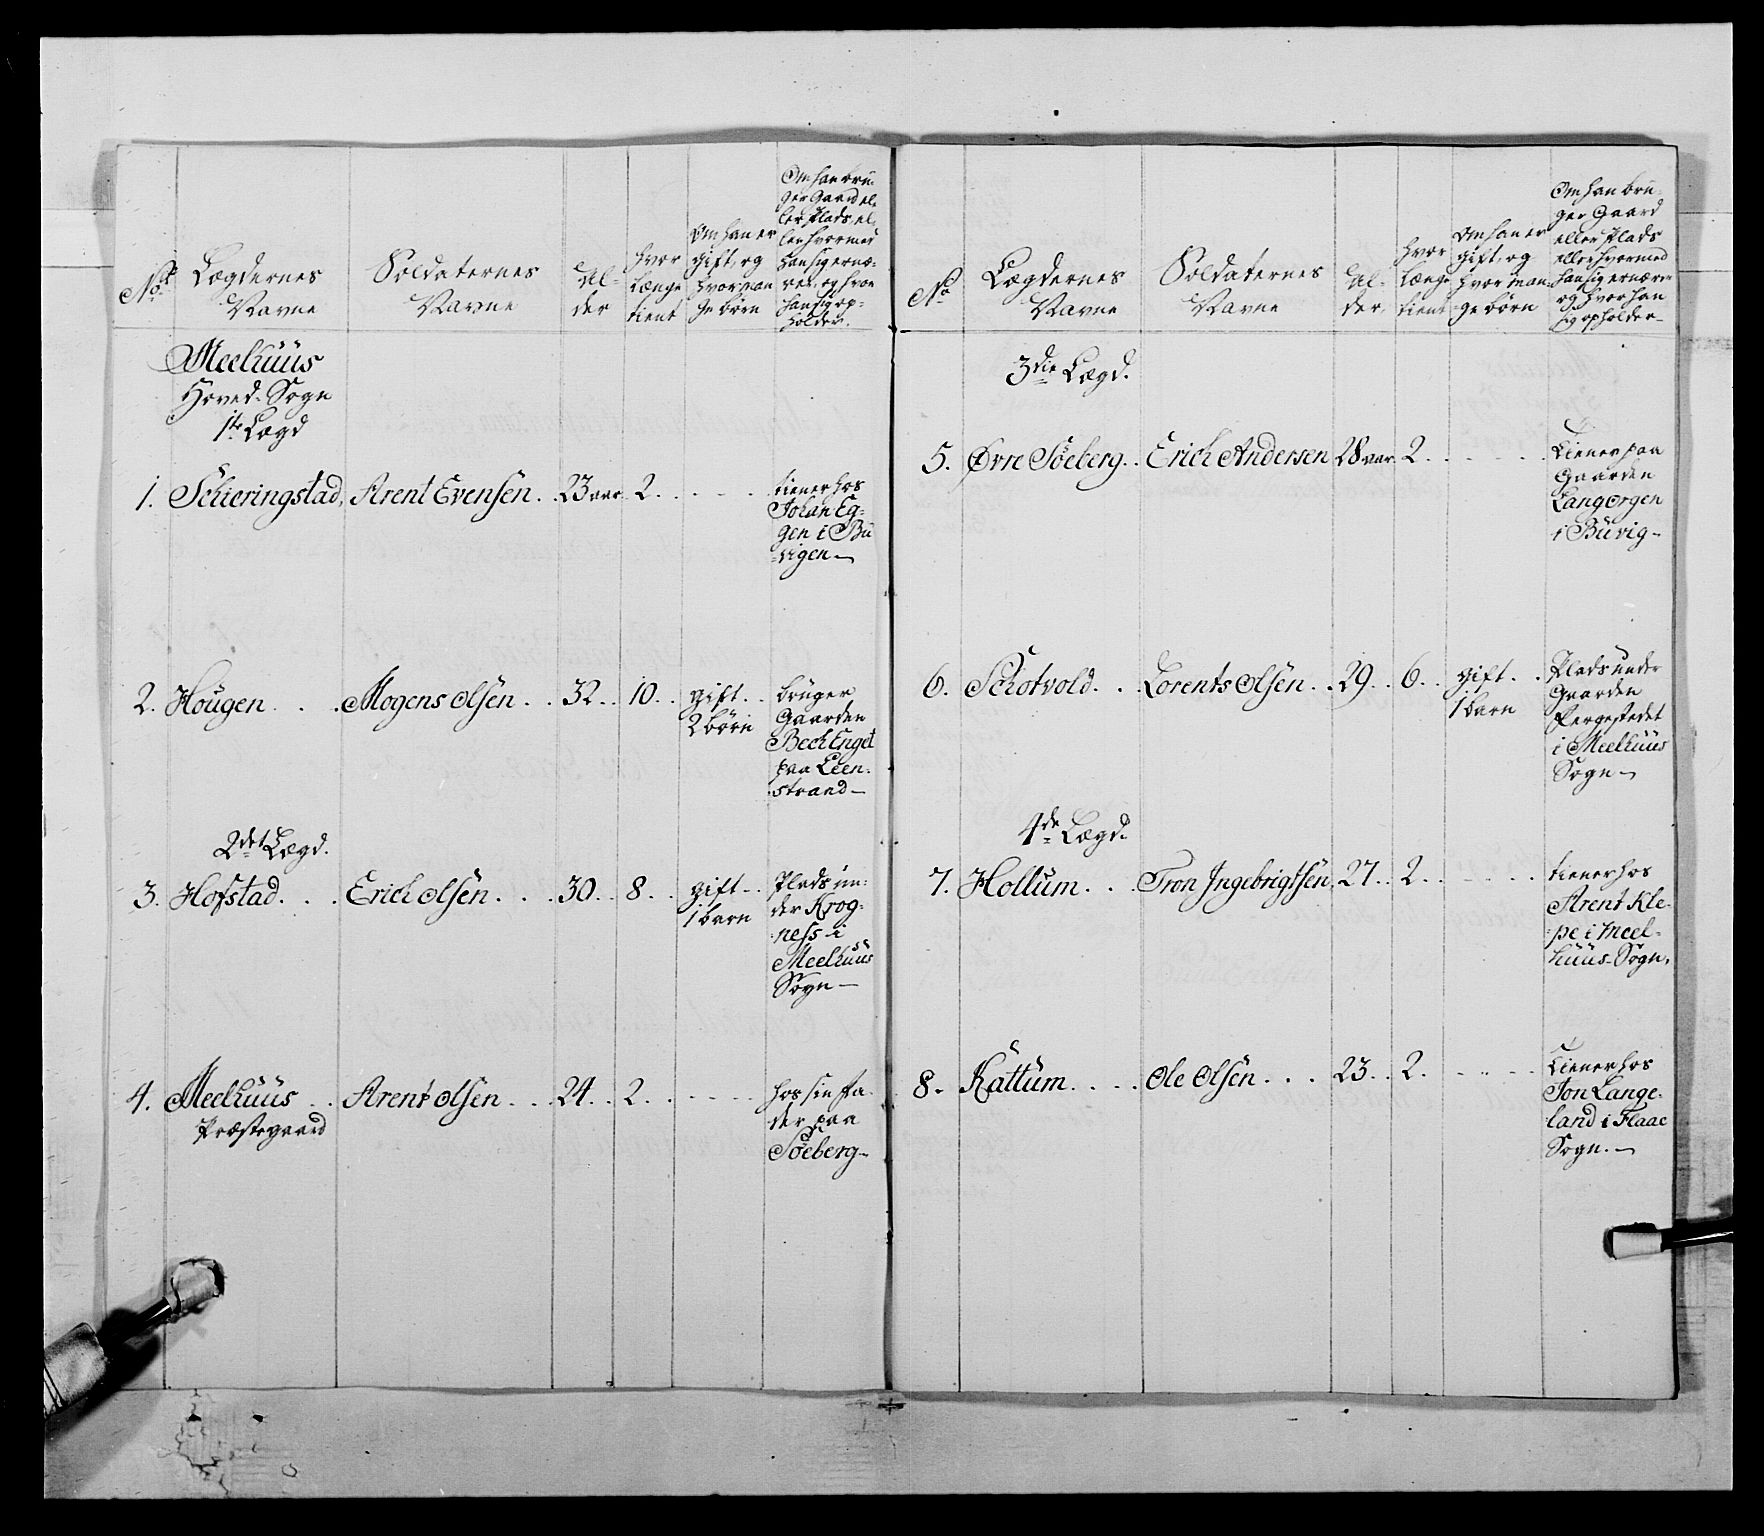 No.
Lægdernes
Navne
Soldaternes
Navne
Al-
der
hvor
længe
tient
Om han er
gift, og
hvor man
ge børn
Om han bru-
ger Gaard el-
ler Plads el-
ler hvormed
han sig ernæ-
rer, og hvor
han sig op-
holder.
Meelhuus
Hoved-Sogn
1te Lægd
1. Schieringstad, Arent Evensen . . 23 aar 2 . . . . .
tiener hos
Johan Eg-
gen i Bu
-vigen -
2. Hougen . . . Mogens Olsen . . 32 . . 10 . . gift . .
2 børn
bruger
Gaarden
Bech Enget
paa Leen-
strand -
2det Lægd.
3. Hofstad . . . Erich Olsen . . . 30 . . 8 . . gift . .
1 barn
Plads un-
der Krog-
ness i
Meelhuus
Sogn -
4. Meelhuus . . Arent Olsen . . . 24 . . 2 . . . . . .
Præstegaard
hos sin Fa-
der paa
Søeberg -
No
Lægdernes
Navne
Soldaternes
Navne
Al-
der.
hvor
længe
tient
Om han er
gift, og
hvor man-
ge børn
Om han bru-
ger Gaard
eller Plads
eller hvormed
han sig ernærer
og hvor han
sig opholder -
3die Lægd.
5. Øvre Söeberg . . Erich Andersen 28 aar 2 . . . . . .
tiener paa
Gaarden
Langørgen
i Buvig -
6. Schotvold . . . Lorents Olsen . . 29 . . 6 . . gift . .
1 barn
Plads under
Gaarden
i Meelhuus
Sogn -
4de Lægd.
7. Hollum . . . Tron Ingebrigtsen, 27 . . 2 . . . . . .
tiener hos
Arent Kle-
pe i Meel-
huus-Sogn,
8. Kattum . . . . Ole Olsen . . . 23 . . 2 . . . . . .
tiener hos
Jon Lange-
land i Flaae
Sogn. -